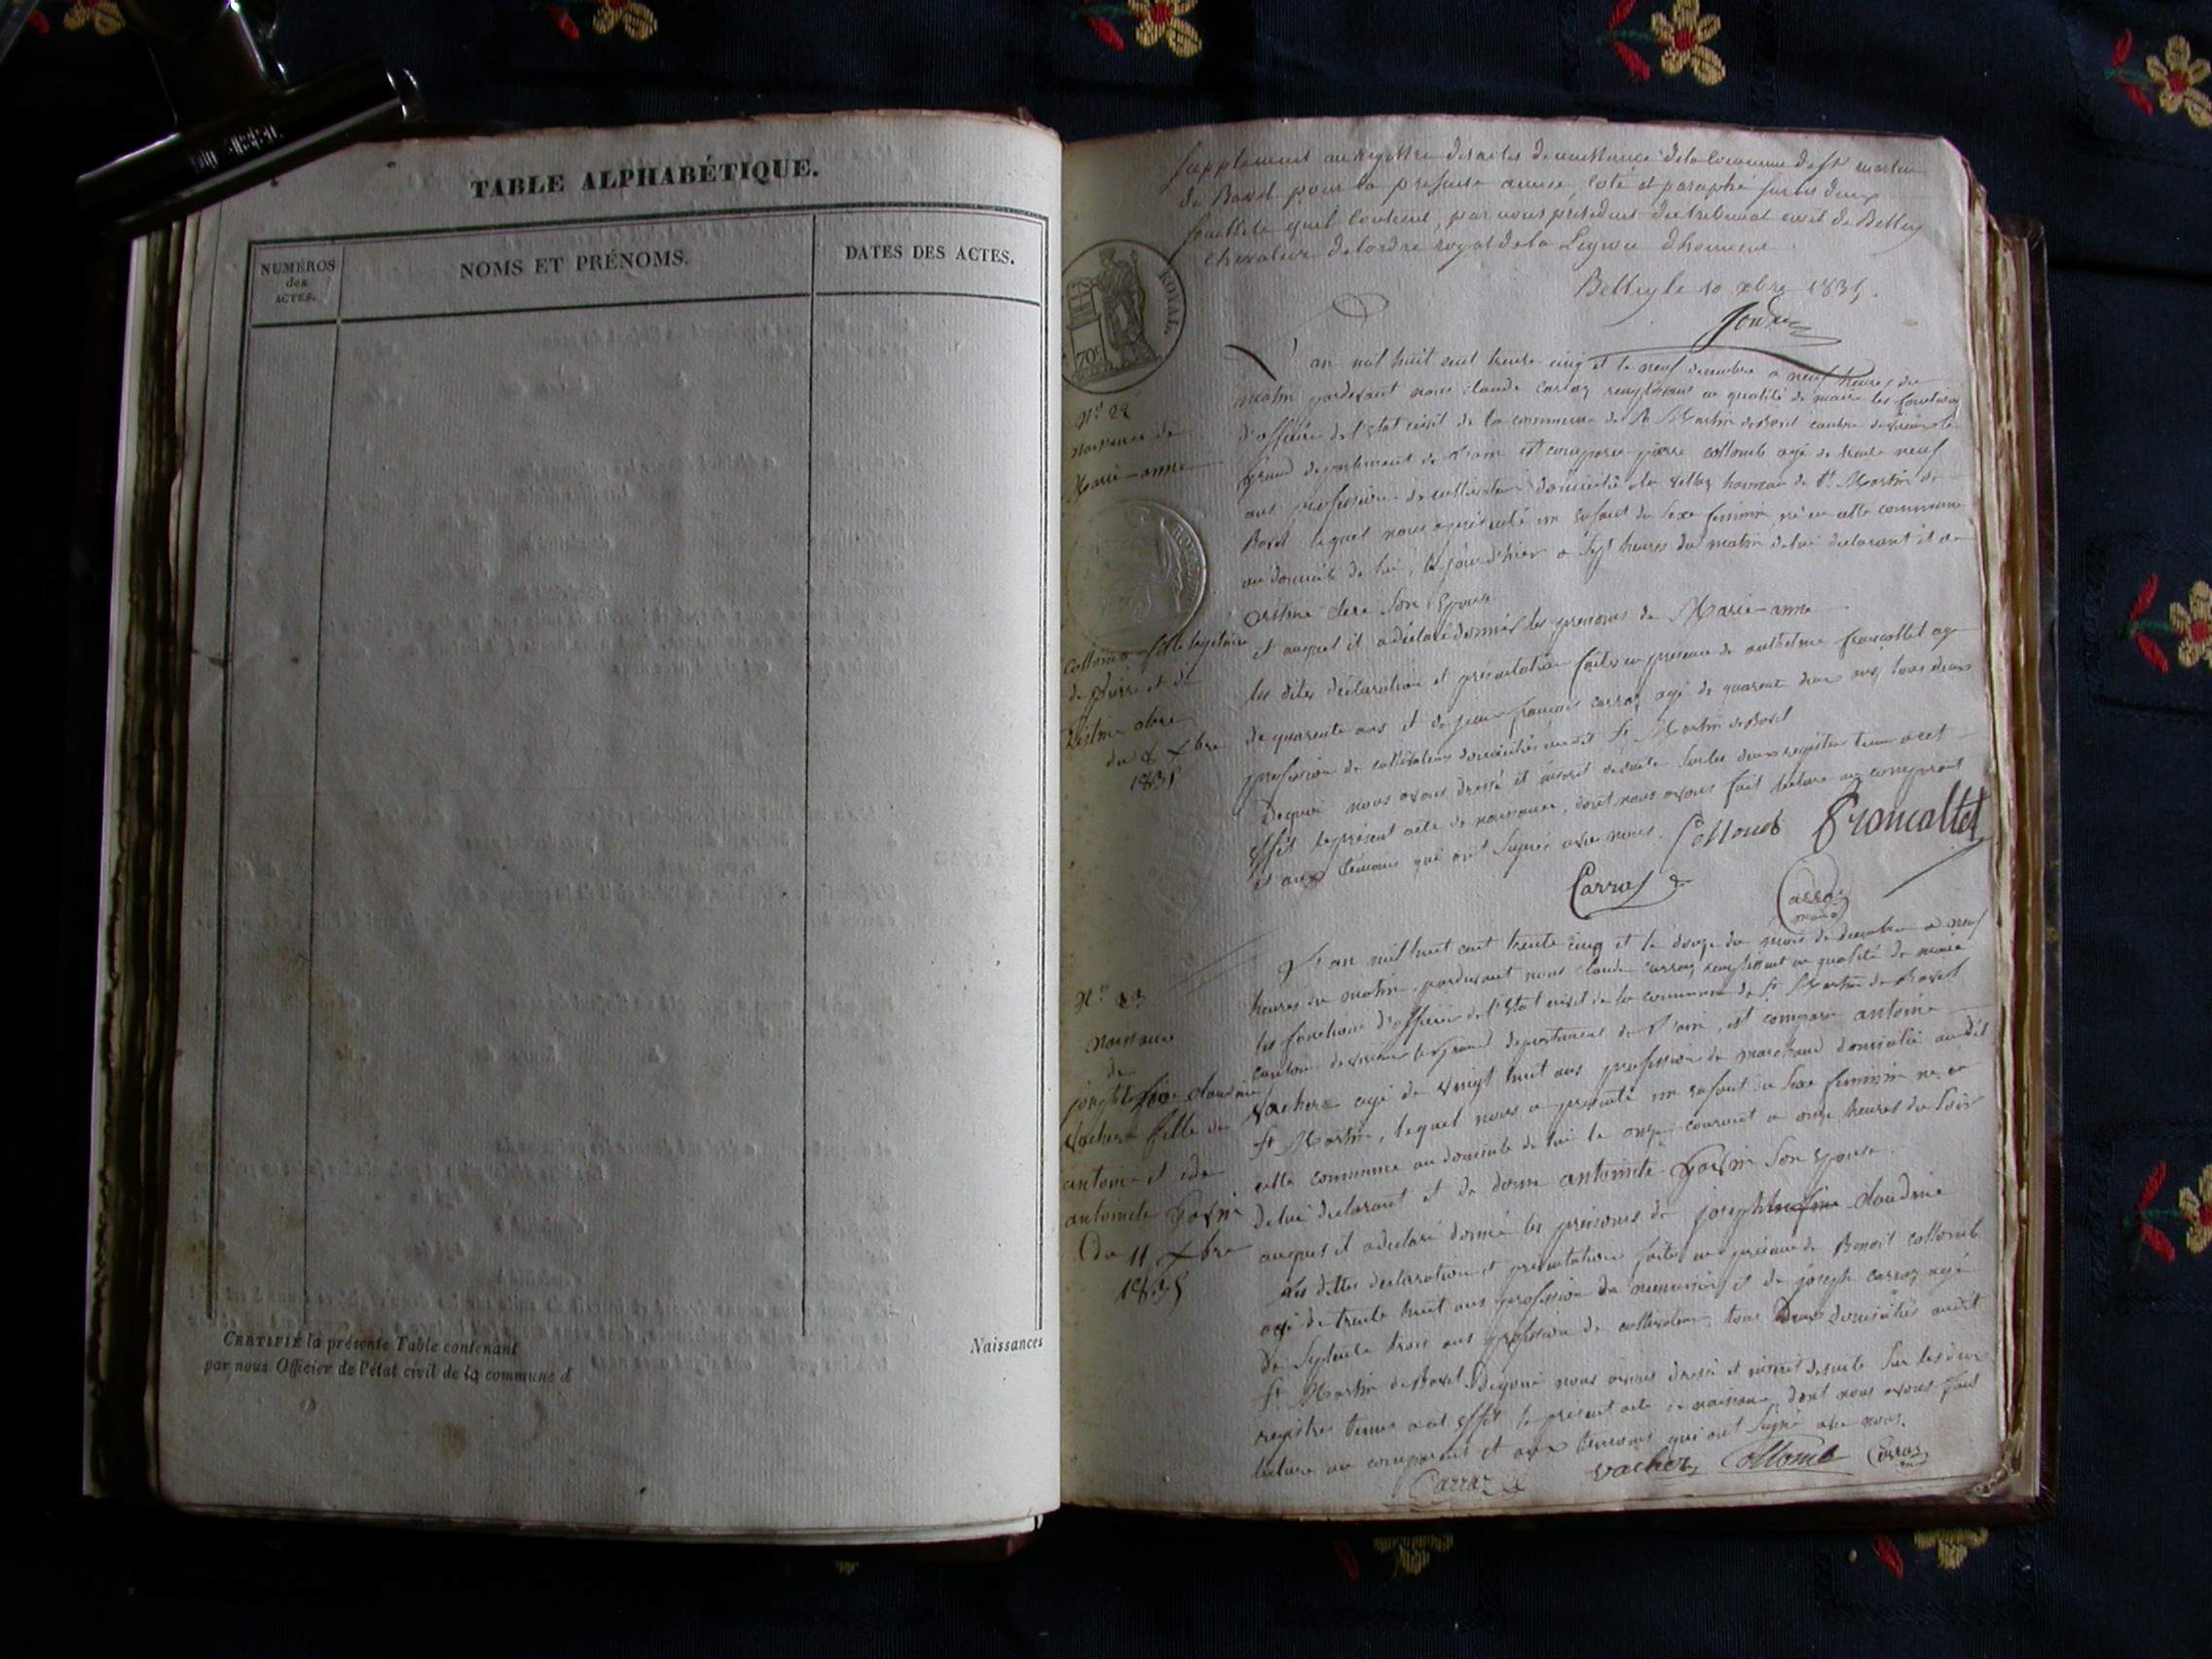 TABLE ALPHABÉTIQUE.
NUMÉROS
des
ACTES.
NOMS ET PRÉNOMS.
DATES DES ACTES.
CERTIFIÉ la présente Table contenant
par nous Officier de l'état civil de la commune d
Naissances
Supplement au registre des actes de naissance de la Commune de St martin
de Bavel pour la presente année, coté et paraphé sur les deux
feuillets quil contient, par nous président du tribunal civil de Belley
chevalier de lordre royal de la Legion dhonneur.
Belley le 10 xbre 1835.
ROYAL.
70c
L'an mil huit cent trente cinq et le neuf decembre a neuf heures du
matin pardevant nous claude carraz remplissant en qualité de maire les fonctions
d'officier de l'Etat civil de la commune de St Martin de Bavel canton de virieu le
grand departement de l'ain est comparu pierre collomb agé de trente neuf
ans profession de cultivateur domicilié a hameau de St. Martin de
Bavel lequel nous a présenté un enfant du sexe feminin, né en cette commune
au domicile de lui, le jour d'hier a sept heures du matin de lui declarant et de
son Epouse
et auquel il a déclaré donner les prenoms de Marie-anne
les dites déclaration et présentation faites en presence de anthelme francallet agé
de quarante ans et de jean françois carraz agé de quarante deux ans, tous deux
profession de cultivateurs domiciliés audit St Martin de Bavel
Dequoi nous avons dressé et inscrit desuite sur les deux registres tenus a cet
effet le présent acte de naissance, dont nous avons fait lecture au comparant
et aux témoins qui ont signés avec nous. Collomb Francallet
Carraz Carraz
maire
N° 22
naissance de
Marie-anne
Collomb fille legitime
de pierre et d
du 8 xbre
1835
L'an mil huit cent trente cinq et le douze du mois de decembre a neuf
heures du matin, pardevant nous claude carraz remplissant en qualité de maire
les fonctions d'officier de l'Etat civil de la commune de St Martin de Bavel
canton de virieu le grand departement de l'ain, est comparu antoine
Vacher agé de vingt huit ans profession de marchand domicilié audit
St Martin, lequel nous a presenté un enfant du sexe feminin né en
cette commune au domicile de lui le onze courant a onze heures du soir
de lui declarant et de dame antoinete son epouse.
auquel il a declaré donné les prénoms de claudine
Les dittes declaration et présentation faites en presence de Benoit collomb
agé de trente huit ans profession de et de joseph carraz agé
de septente trois ans profession de cultivateur, tous deux domiciliés audit
St. Martin de Bavel. Dequoi nous avons dressé et inscrit desuite sur les deux
registres tenus a cet effet le présent acte de naissance, dont nous avons fait
lecture au comparant et aux temoins qui ont signé avec nous.
Carraz vacher Collomb Carraz
N° 23
Naissance
de
claudine
Vacher fille de
antoine et de
antoinete
du 11 xbre
1835